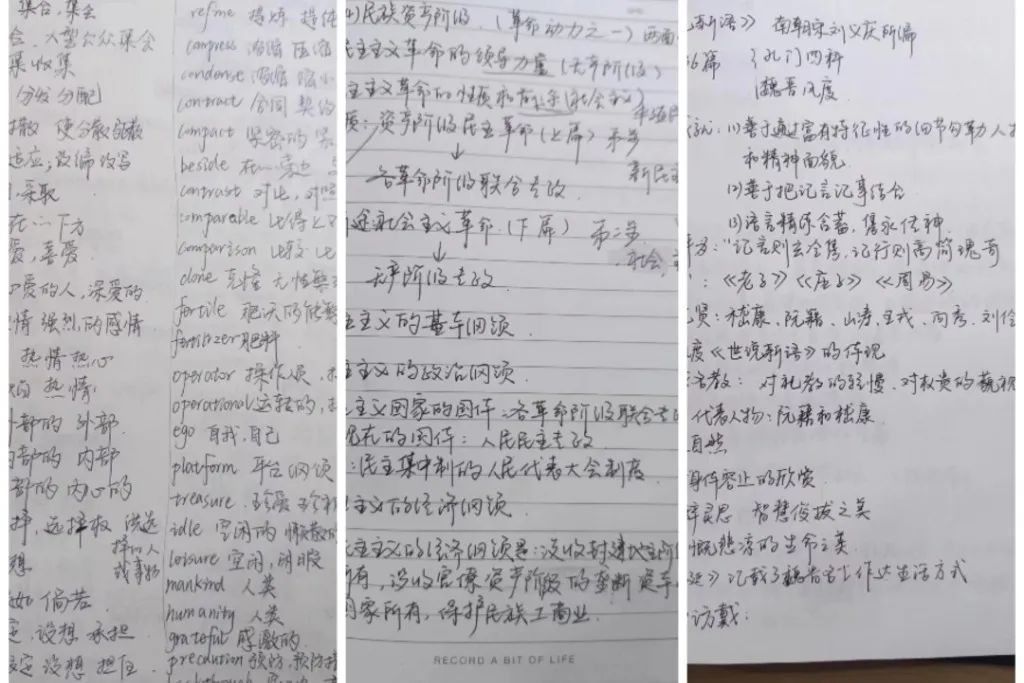 集合,集会
会,大型公众集会
集 收集
分发 分配
散 使分散
适应;改编 改写
采取
在…下方
爱,喜爱
爱的人,深爱的
情 强烈的感情
热情 热心
热情
外部的 外部
内部的 内部
部的 内心的
择,选择权 供选
择的人
或事物
想
如 倘若
定,设想 承担
设定 设想 担任
refine 提炼
compress 浓缩 压缩
condense 浓缩 缩小
contract 合同 契约
compact 紧密的
beside 在…旁边
contrast 对比,对照
comparable 比得上
comparison 比较 比
clone 克隆 无性繁
fertile 肥沃的 能繁
fertilizer 肥料
operator 操作员
operational 运转的,
ego 自我,自己
platform 平台 纲领
treasure
idle 空闲的 懒散的
leisure 空闲,闲暇
mankind 人类
humanity 人类
grateful 感激的
precaution 预防,预防措
民族资产阶级.(革命动力之一)两面
民主主义革命的领导力量(无产阶级)
主主义革命的性质和前途(社会主义)
资产阶级民主革命(上篇)第一步
↓
各革命阶级联合专政
新民主
途社会主义革命.(下篇)第二步
社会
↓
无产阶级专政
主主义的基本纲领
主主义的政治纲领
主主义国家的国体:各革命阶级联合专
现在的国体:人民民主专政
:民主集中制的人民代表大会制度
主主义的经济纲领
主主义的经济纲领是:没收封建地主阶
所有,没收官僚资产阶级的垄断资本
国家所有,保护民族工商业.
RECORD A BIT OF LIFE
新语》 南朝宋刘义庆所编
36篇 孔门四种
魏晋风度
(1)善于通过富有特征性的细节勾勒人
和精神面貌.
(2)善于把记言记事结合
(3)语言精练含蓄,隽永传神.
"记言则玄远冷隽,记行则高简瑰奇
:《老子》《庄子》《周易》
贤:嵇康、阮籍、山涛、王戎、向秀、刘伶
度《世说新语》的体现
名教:对礼教的轻慢.对权贵的藐视
代表人物:阮籍和嵇康.
自然
身体容止的欣赏.
智慧俊拔之美
慨悲凉的生命之美
》记载了魏晋名士作达生活方式
访戴: